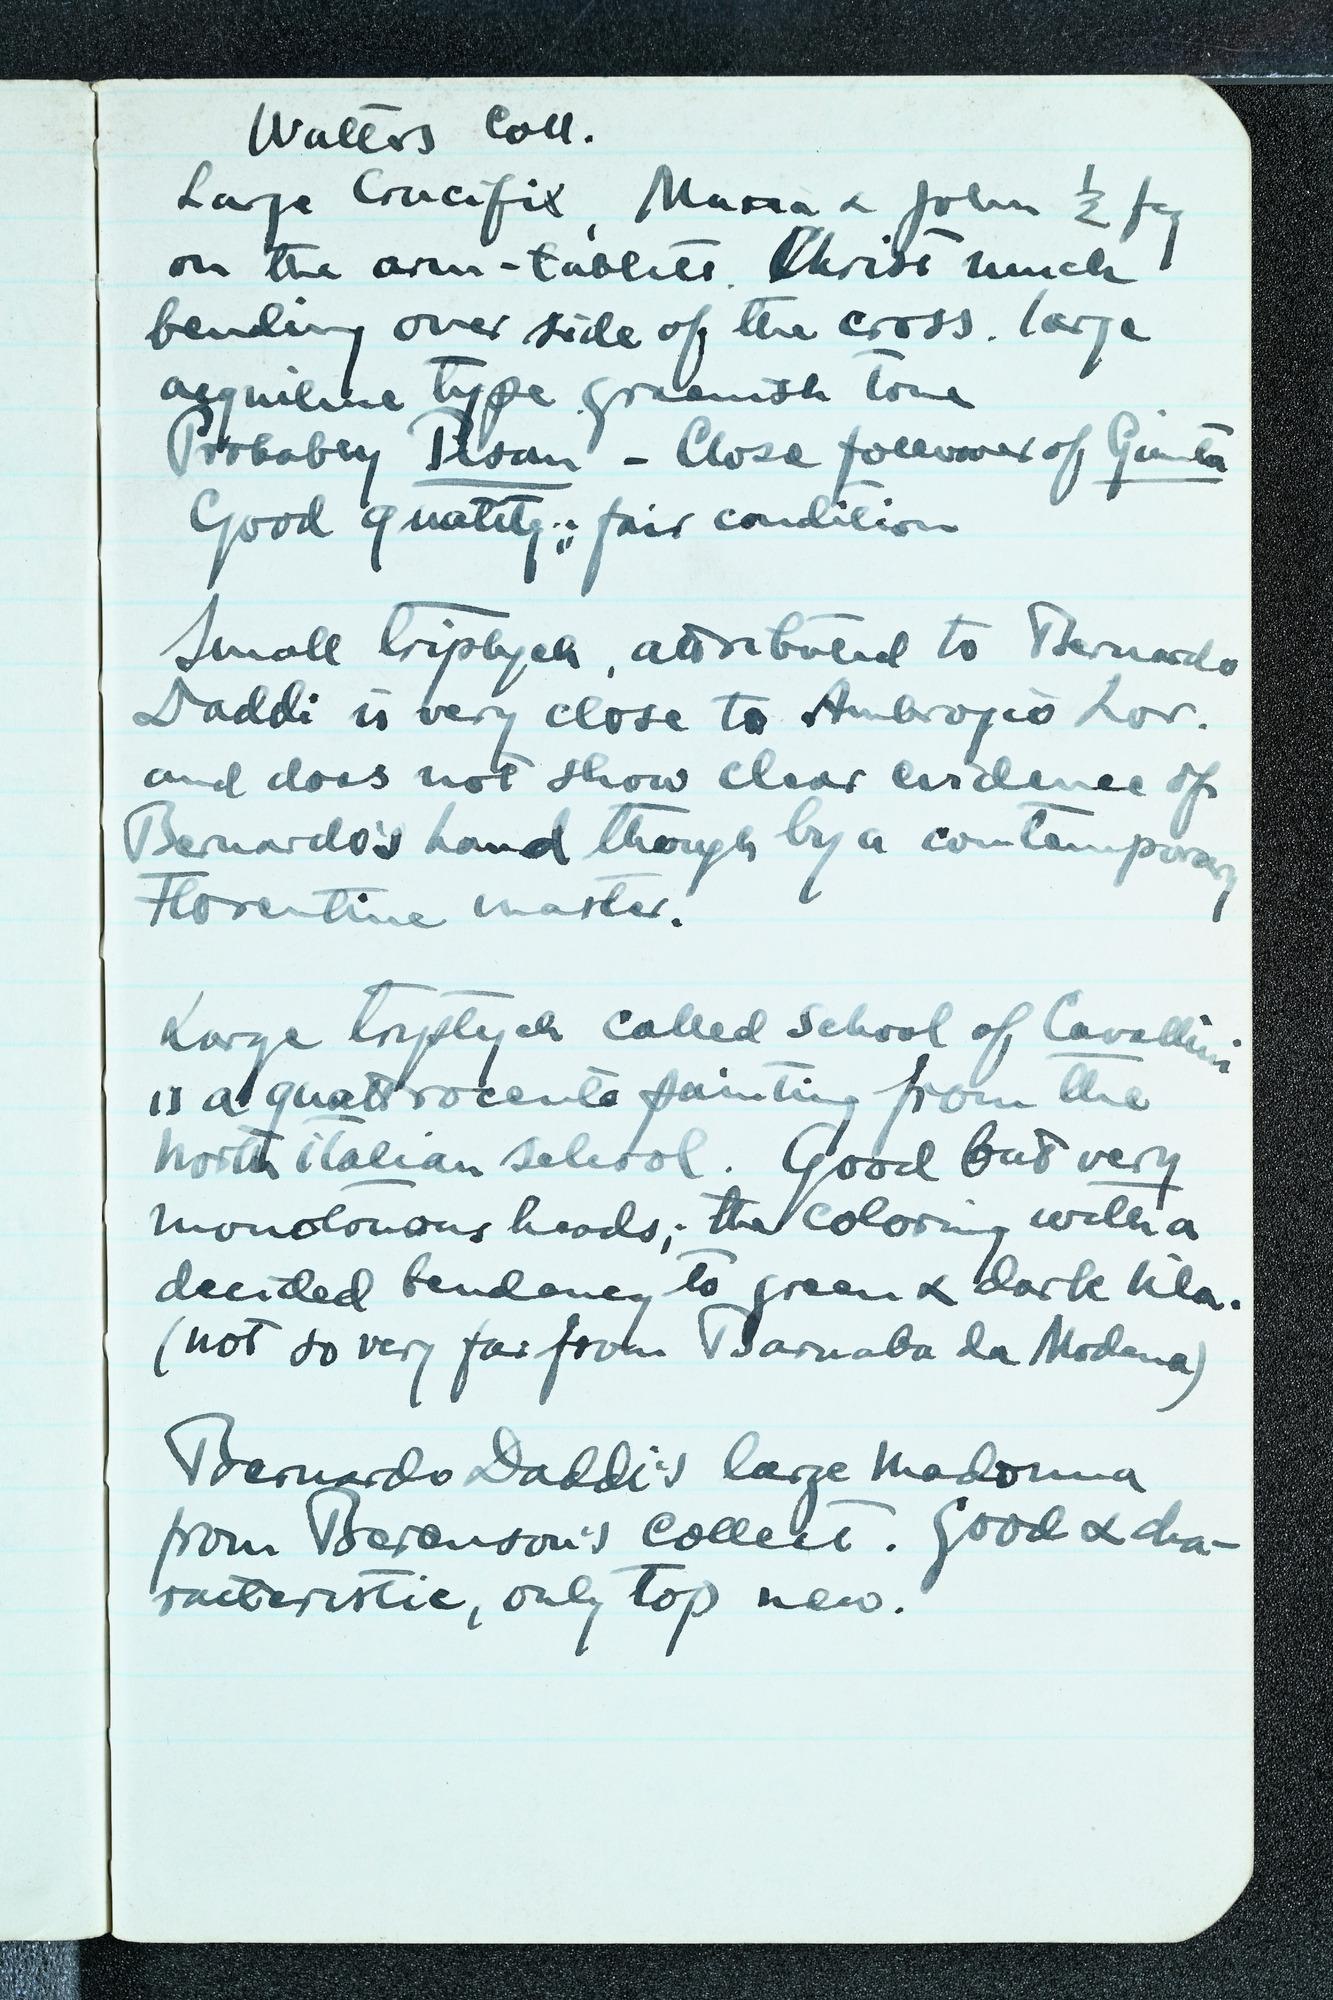 Walters Coll.
Large Crucifix, Maria & John ½ fig
on the arm-tablets. Christ much
bending over side of the cross. large
aequiline type greenish tone
Probabey Pisan - Close follower of Giunta
Good quality; fair condition
Small triptych, attributed to Bernardo
Daddi is very close to Ambrogio Lor.
and does not show clear evidence of
Bernardo's hand though by a contemporary
Florentine master.
Large triptych called School of Cavallini
is a quattrocento painting from the
North italian school. Good but very
monotonous heads; the coloring with a
decided tendency to green & dark lila.
(not so very far from Barnaba da Modena)
Bernardo Daddi's large Madonna
from Berenson's Collect. Good & cha-
racteristic, only top new.